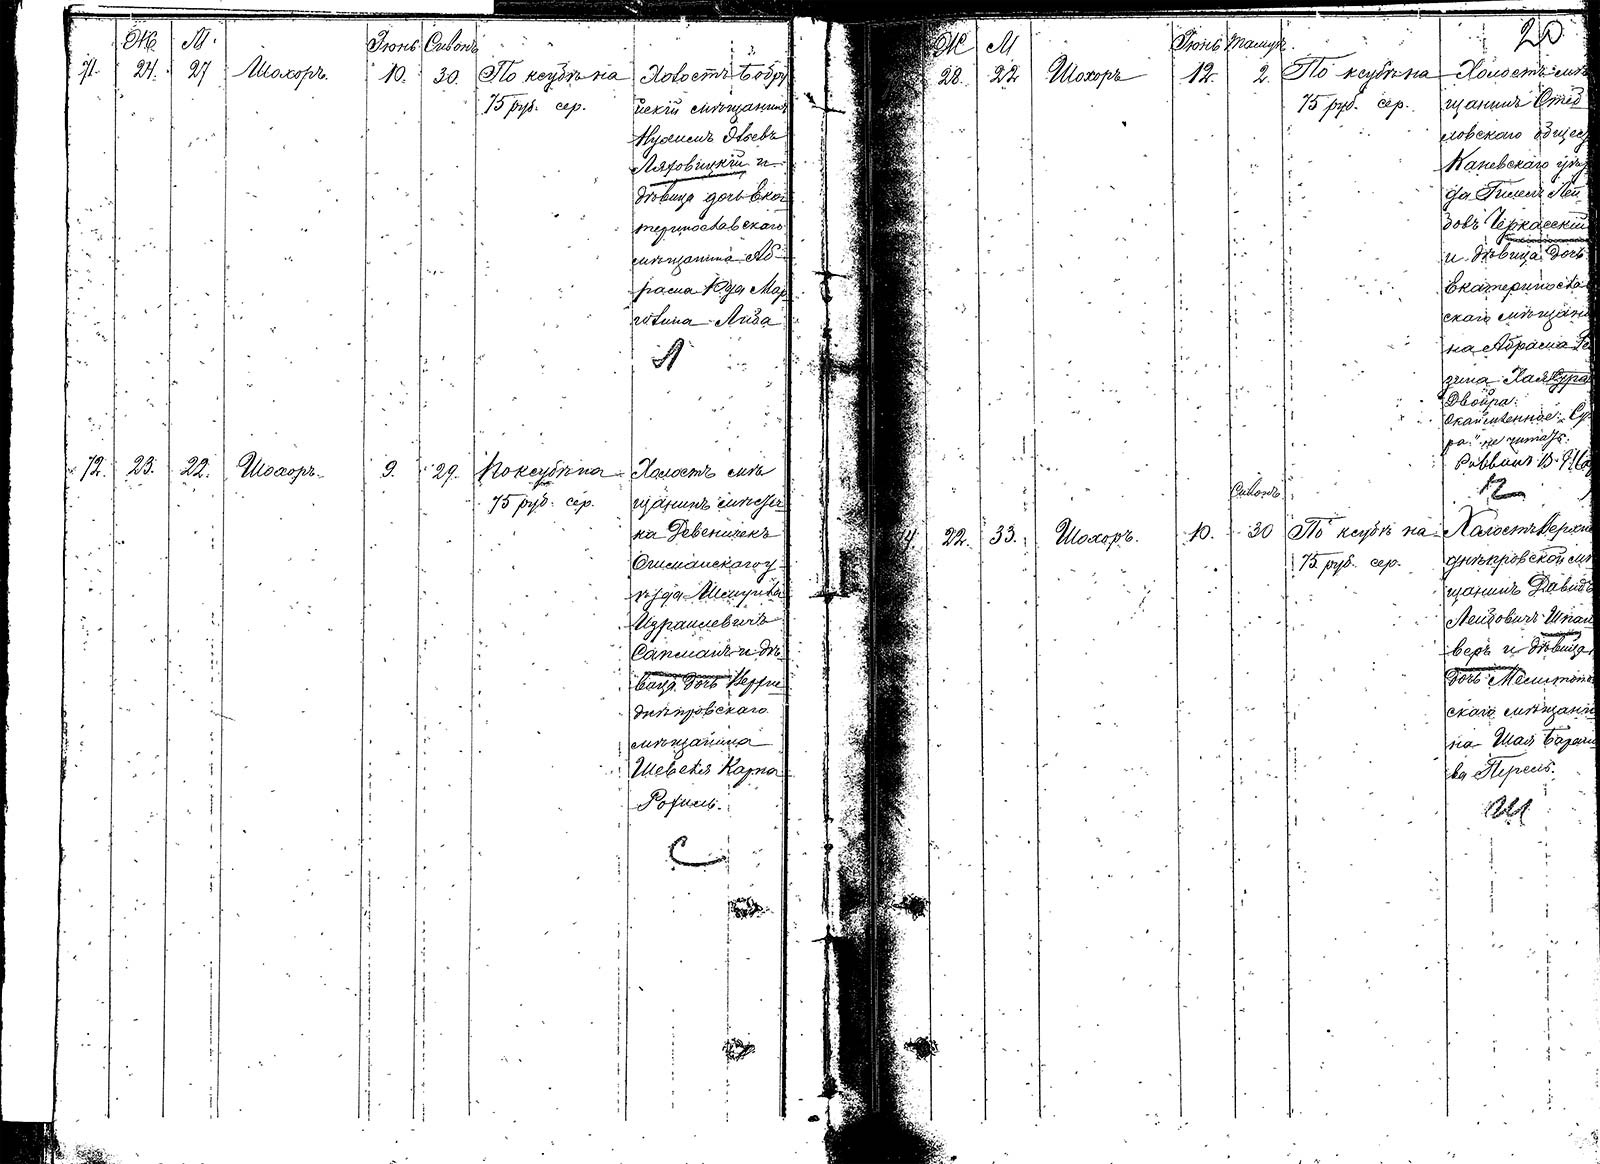 Ж М. Іюнь Сивонъ
71. 24. 27 Шохоръ. 10. 30. По ксубѣ на
75 руб. сер.
Холостъ Бобру
йскій мѣщанинъ
Ляховицкій и
дѣвица дочь Ека
теринославскаго
мѣщанина Аб
рама Юда Мар
голина Либа
Л
72. 23. 22. Шохоръ. 9. 29. По ксубѣ на
75 руб. сер.
Холостъ мѣ
щанинъ мѣстеч
ка Девенишекъ
Ошмянскаго у
ѣзда Шмуйла
Израилевичъ
Сапманъ и дѣ
вица дочь Верхне
днѣпровскаго
мѣщанина
Шевеля Карпа
Рохиль.
С
20
Ж М Іюнь Тамузъ.
28. 22 Шохоръ 12. 2. По ксубѣ на
75 руб. сер.
Холостъ мѣ
щанинъ Стеб
ловскаго общес
Каневскаго уѣз
да Гилелъ Лей
зовъ Черкасскій
и дѣвица дочь
Екатеринослав
скаго мѣщани
на Абрама
зина Хая Сура
Двойра.
Окаймленное: „Су
ра" не читать.
Раввинъ
Ч
Сивонъ
4. 22. 33. Шохоръ. 10. 30 По ксубѣ на
75 руб. сер.
Холостъ Верхне
днѣпровской мѣ
щанинъ Давидъ
Лейзовичъ Шпай
веръ и дѣвица
дочь Мелитополь
скаго мѣщани
на Шая Барано
ва Перель.
Ш